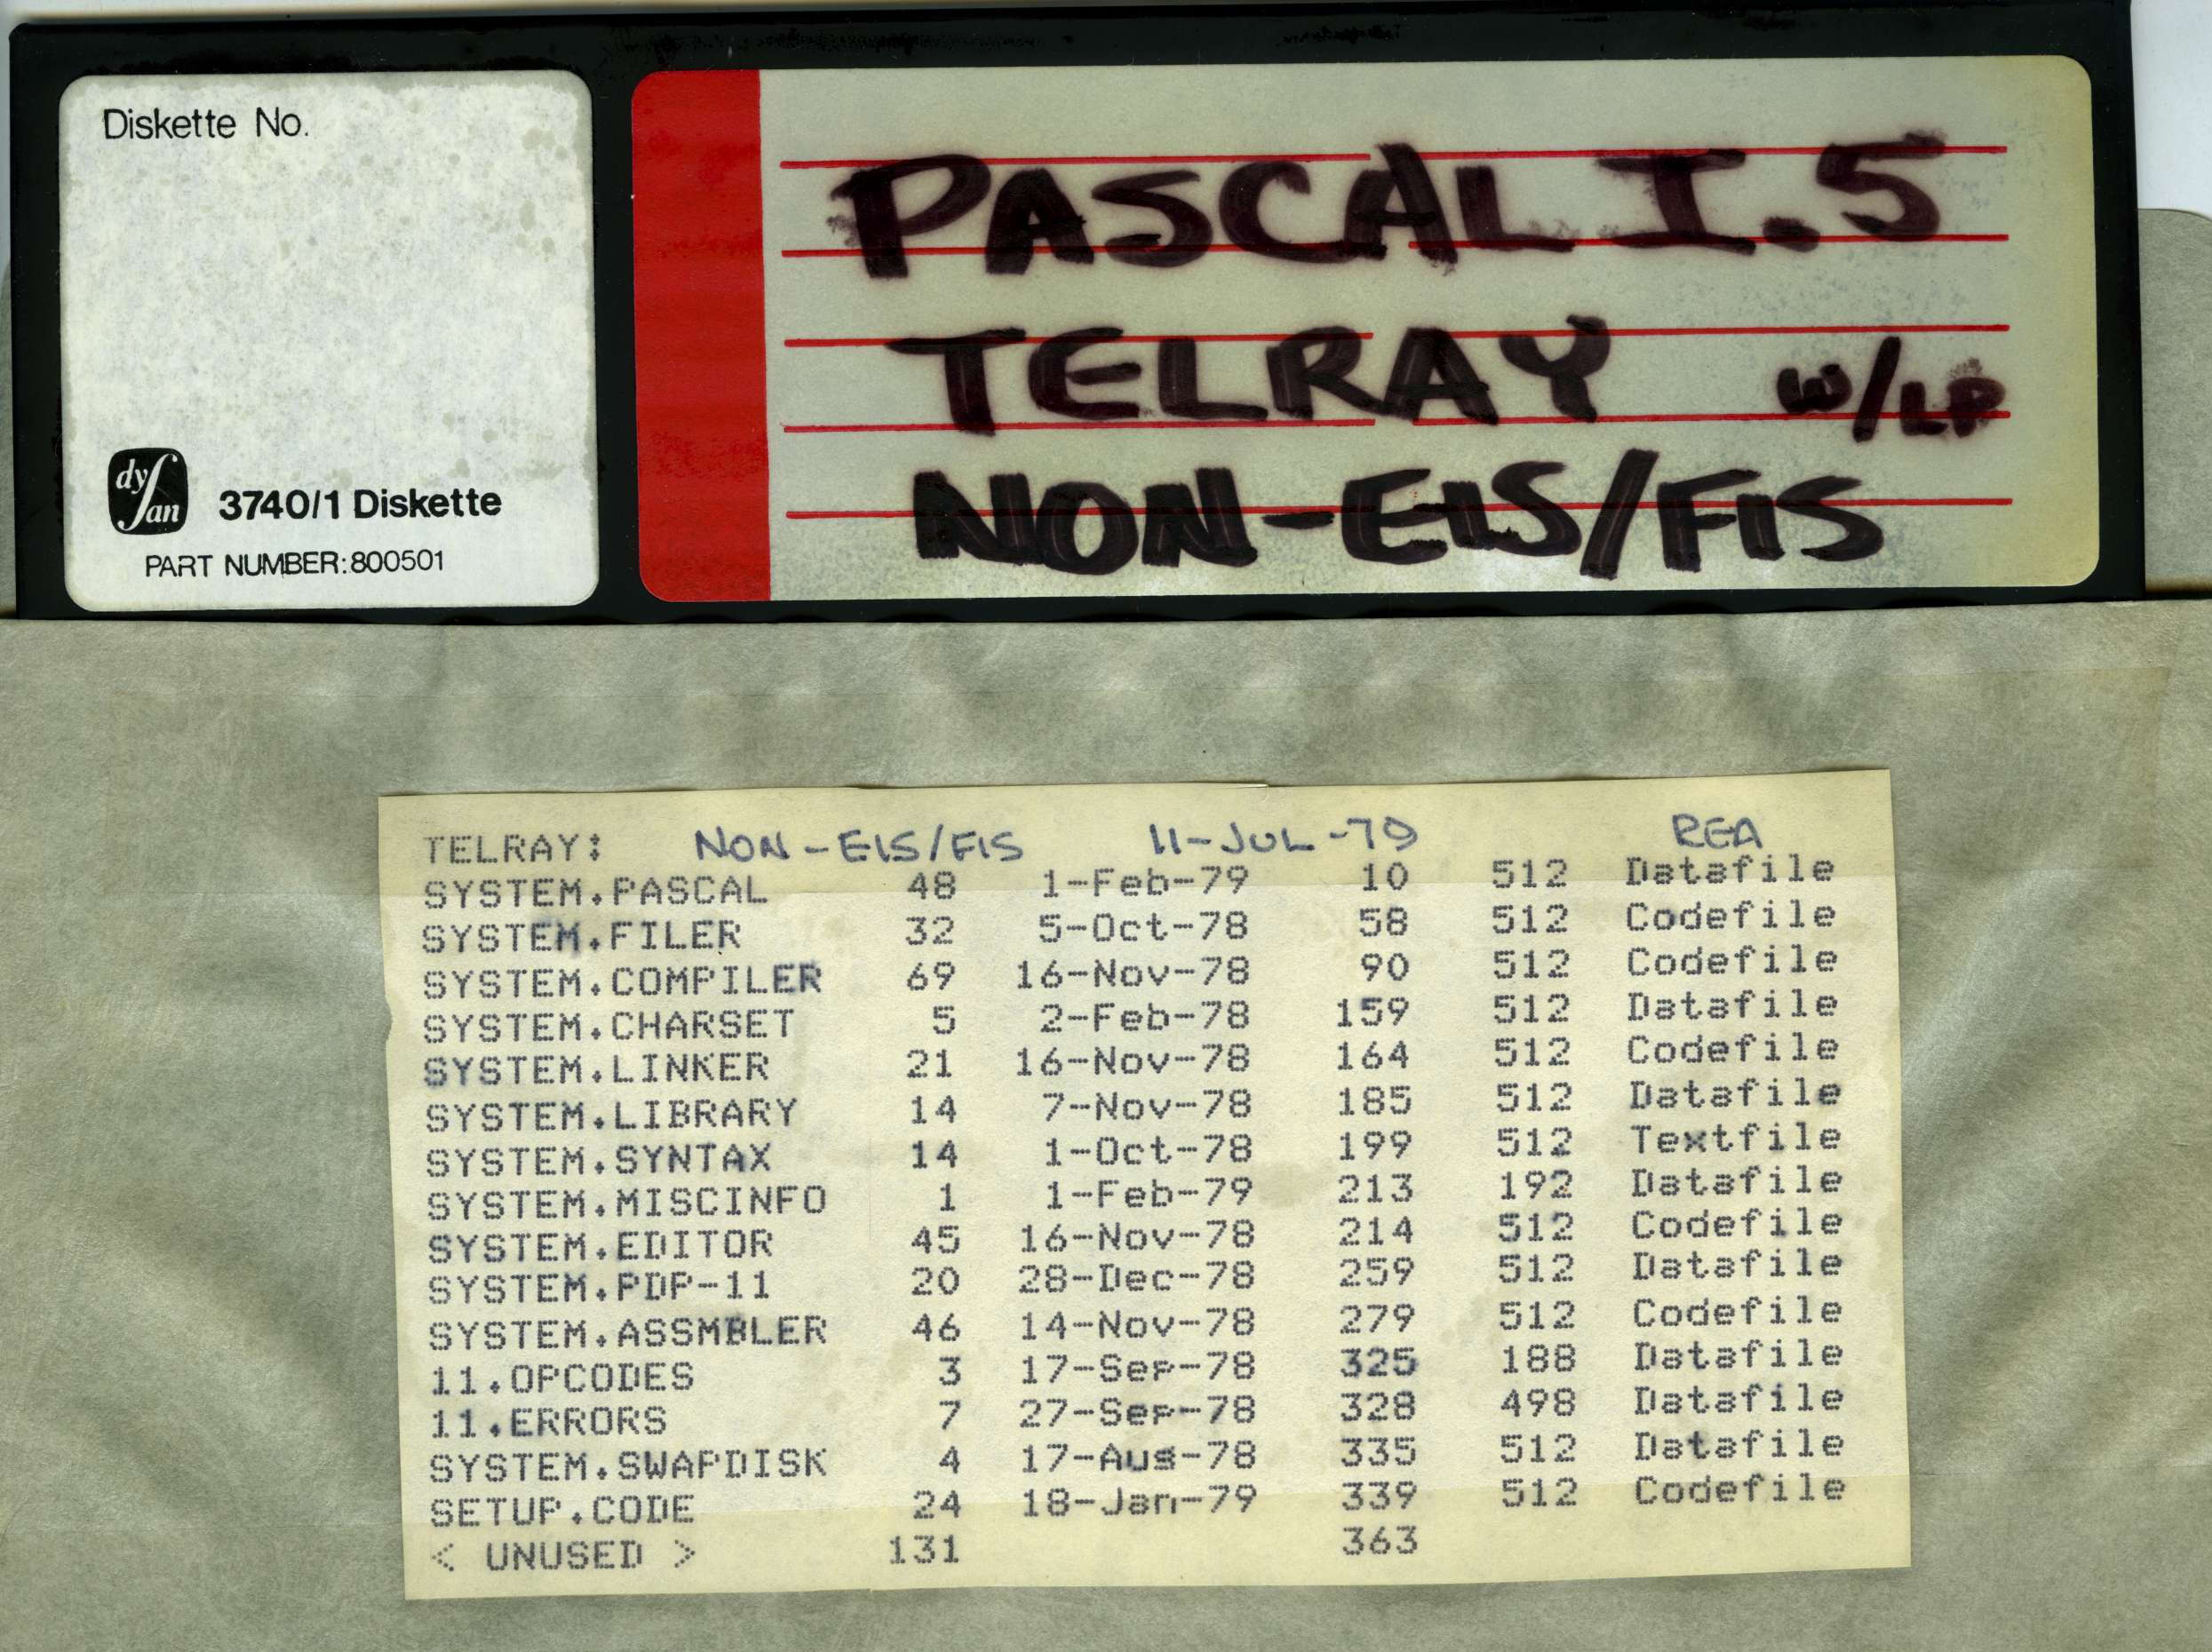 Diskette No.
dysan
3740/1 Diskette
PART NUMBER:800501
PASCAL I.5
TELRAY W/LP
NON-EIS/FIS
TELRAY: NON-EIS/FIS 11-JUL-79 REA
SYSTEM.PASCAL 48 1-Feb-79 10 512 Datafile
SYSTEM.FILER 32 5-Oct-78 58 512 Codefile
SYSTEM.COMPILER 69 16-Nov-78 90 512 Codefile
SYSTEM.CHARSET 5 2-Feb-78 159 512 Datafile
SYSTEM.LINKER 21 16-Nov-78 164 512 Codefile
SYSTEM.LIBRARY 14 7-Nov-78 185 512 Datafile
SYSTEM.SYNTAX 14 1-Oct-78 199 512 Textfile
SYSTEM.MISCINFO 1 1-Feb-79 213 192 Datafile
SYSTEM.EDITOR 45 16-Nov-78 214 512 Codefile
SYSTEM.PDP-11 20 28-Dec-78 259 512 Datafile
SYSTEM.ASSMBLER 46 14-Nov-78 279 512 Codefile
11.OPCODES 3 17-Sep-78 325 188 Datafile
11.ERRORS 7 27-Sep-78 328 498 Datafile
SYSTEM.SWAPDISK 4 17-Aug-78 335 512 Datafile
SETUP.CODE 24 18-Jan-79 339 512 Codefile
< UNUSED > 131 363